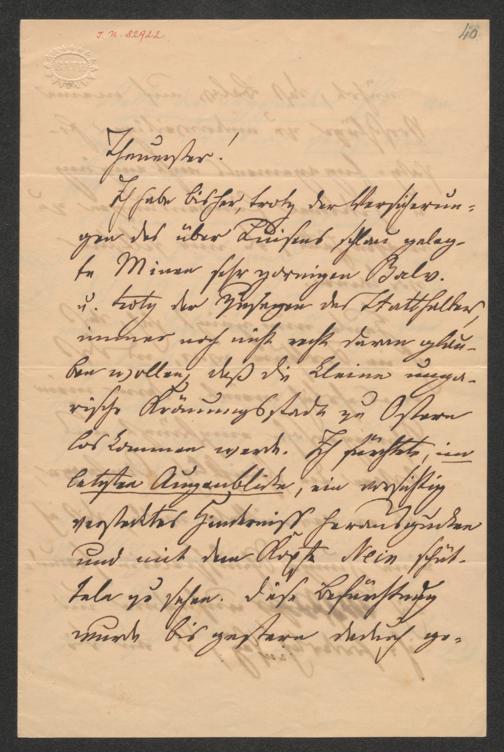 J. N. 82922
40
Theuerster!
Ich habe bisher, trotz der Versicherun-
gen des über Luisens schlau geleg-
te Minen sehr zornigen Balv.
u. trotz der Zusagen des Statthalters,
immer noch nicht recht daran glau-
ben wollen, daß die kleine unga-
rische Krönungsstadt zu Ostern
loskommen werde. Ich fürchtete, im
letzten Augenblicke, ein vorsichtig
verstecktes Hinderniss herausgucken
und mit dem Kopfe Nein schüt-
teln zu sehen. Diese Befürchtung
wurde bis gestern dadurch ge-